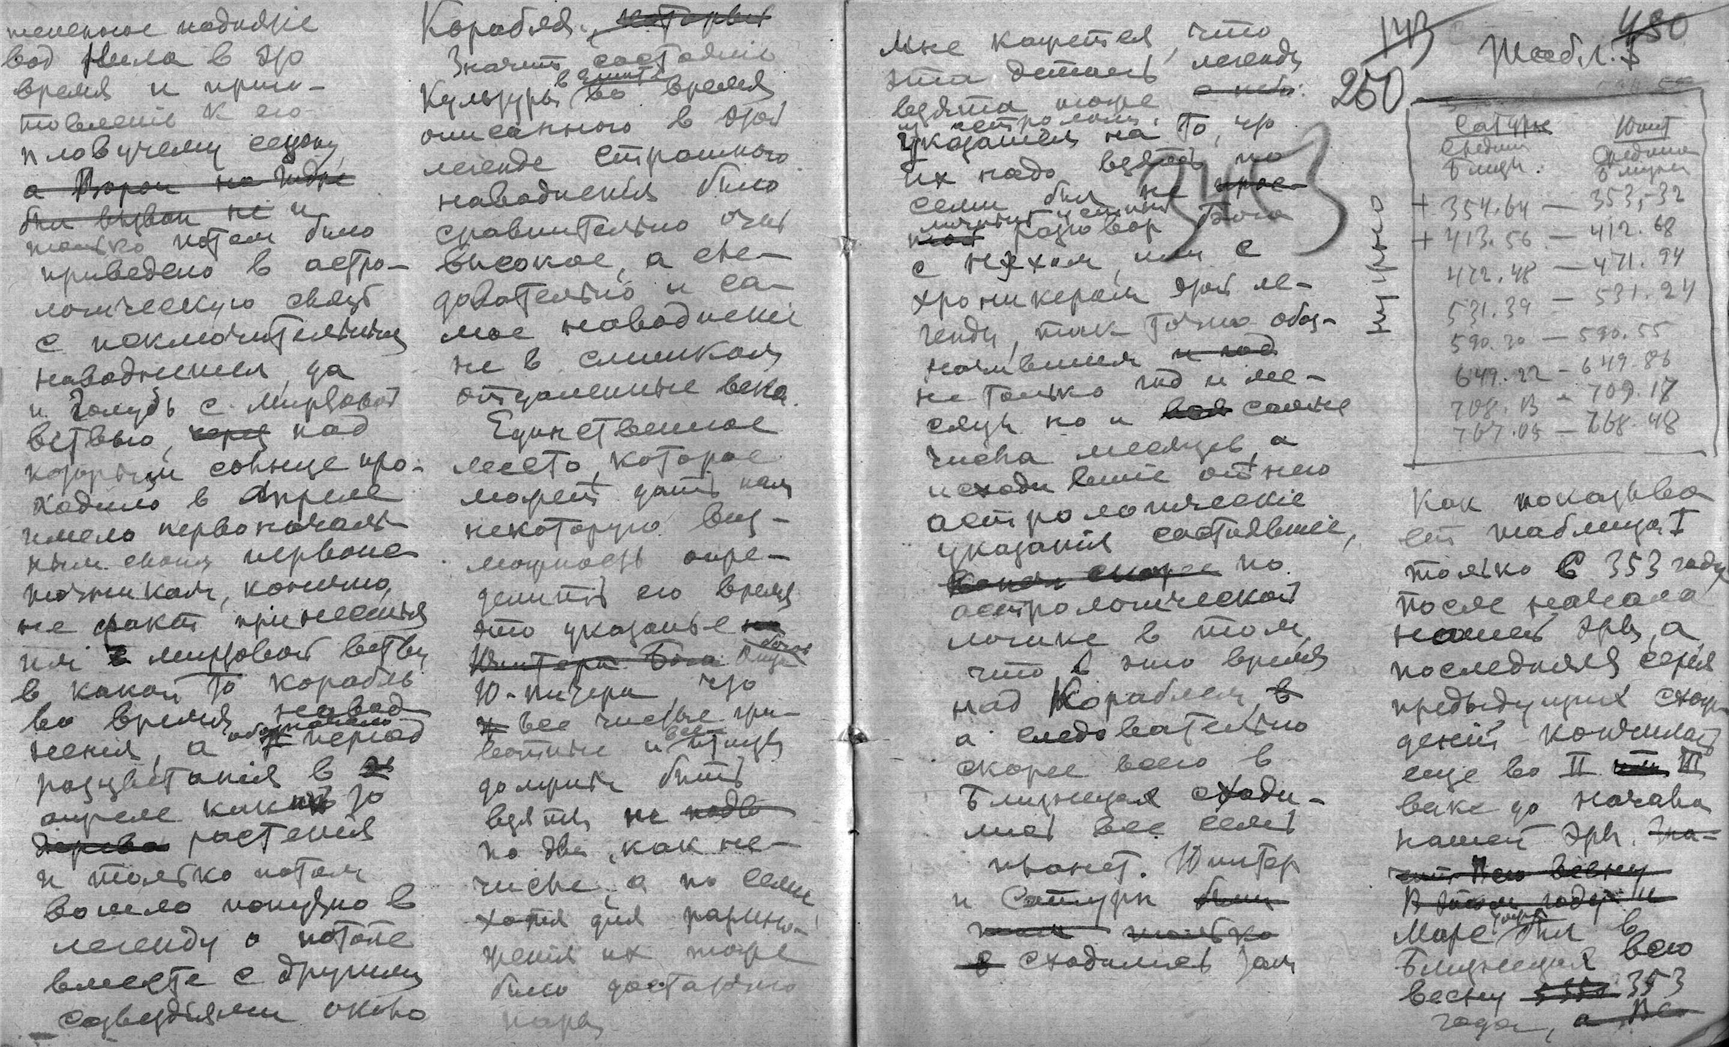 пенное поднятіе
вод Нила в это
время и приго-
товленіе к его
пловучему сезону,
а Ворон на Гидре
был вызван не и
только потом было
приведено в астро-
логическую связь
с исключительным
наводнением, да
и Голубь с мировой
ветвью, через над
которым солнце про-
ходило в Апреле
имело первоначаль-
ным своим первоис-
точником, конечно,
не факт принесенія
им в мировой ветви
в какой то корабль
во время навод-
ненія, а обозначало
період
разцветанія в
апреле каких то
дерева растенія
и только потом
вошло попутно в
легенду о потопе
вместе с другими
созвездіями около
Корабля, которых
Значит состояніе
культуры в Египте во время
описанного в этой
легенде страшного
наводненія было
сравнительно очень
высокое, а сле-
довательно и са-
мое наводненіе
не в слишком
отдаленные века.
Единственное
место, которое
может дать нам
некоторую воз-
можность опре-
делить его время
это указанье на
Юпитера Бога Отца богов
Ю-питера, что
все чистые жи-
вотные и все птицы
должны быть
взяты не подво
по две, как не-
чистые, а по семи
хотя для размно-
женія их тоже
было достаточно
пары
Мне кажется, что
эта деталь легенды
взята тоже с неба
из астрологіи.
Указанія на то, что
их надо взять по
семи был не прос-
той разговор Бога
с Нэхом, или с
хроникером этой ле-
генды, так точно обоз-
начившим и год
не только год и ме-
сяцы но и все самые
числа месяцев, а
исходившіе от него
астрологическіе
указанія состоявшіе,
скорее по
астрологической
логике в том,
что в это время
над Кораблем, в
а следовательно
скорее всего в
Близнецах сходи-
лись все семь
планет. Юпитер
и Сатурн были
там только
в сходились там
143
450
250
Табл. I
243
нужно
Сатурн Юпит
Средин Средина
Близн. Близн
+ 354.64 — 353,-32
+ 413.56 — 412.68
472.48 — 471.94
531.39 — 531.24
590.30 — 590.55
649.22 — 649.86
708.13 — 709.17
767.05 — 768.48
Как показыва
ет таблица I
только в 353 году
после начала
нашей эры, а
последняя серія
предыдущих схож-
деній кончилась
еще во II или III
веке до начала
нашей эры. Зна-
чит Всю весну
В этом году и
Марс был в
Близнецах всю
весну 353
года, а Ве